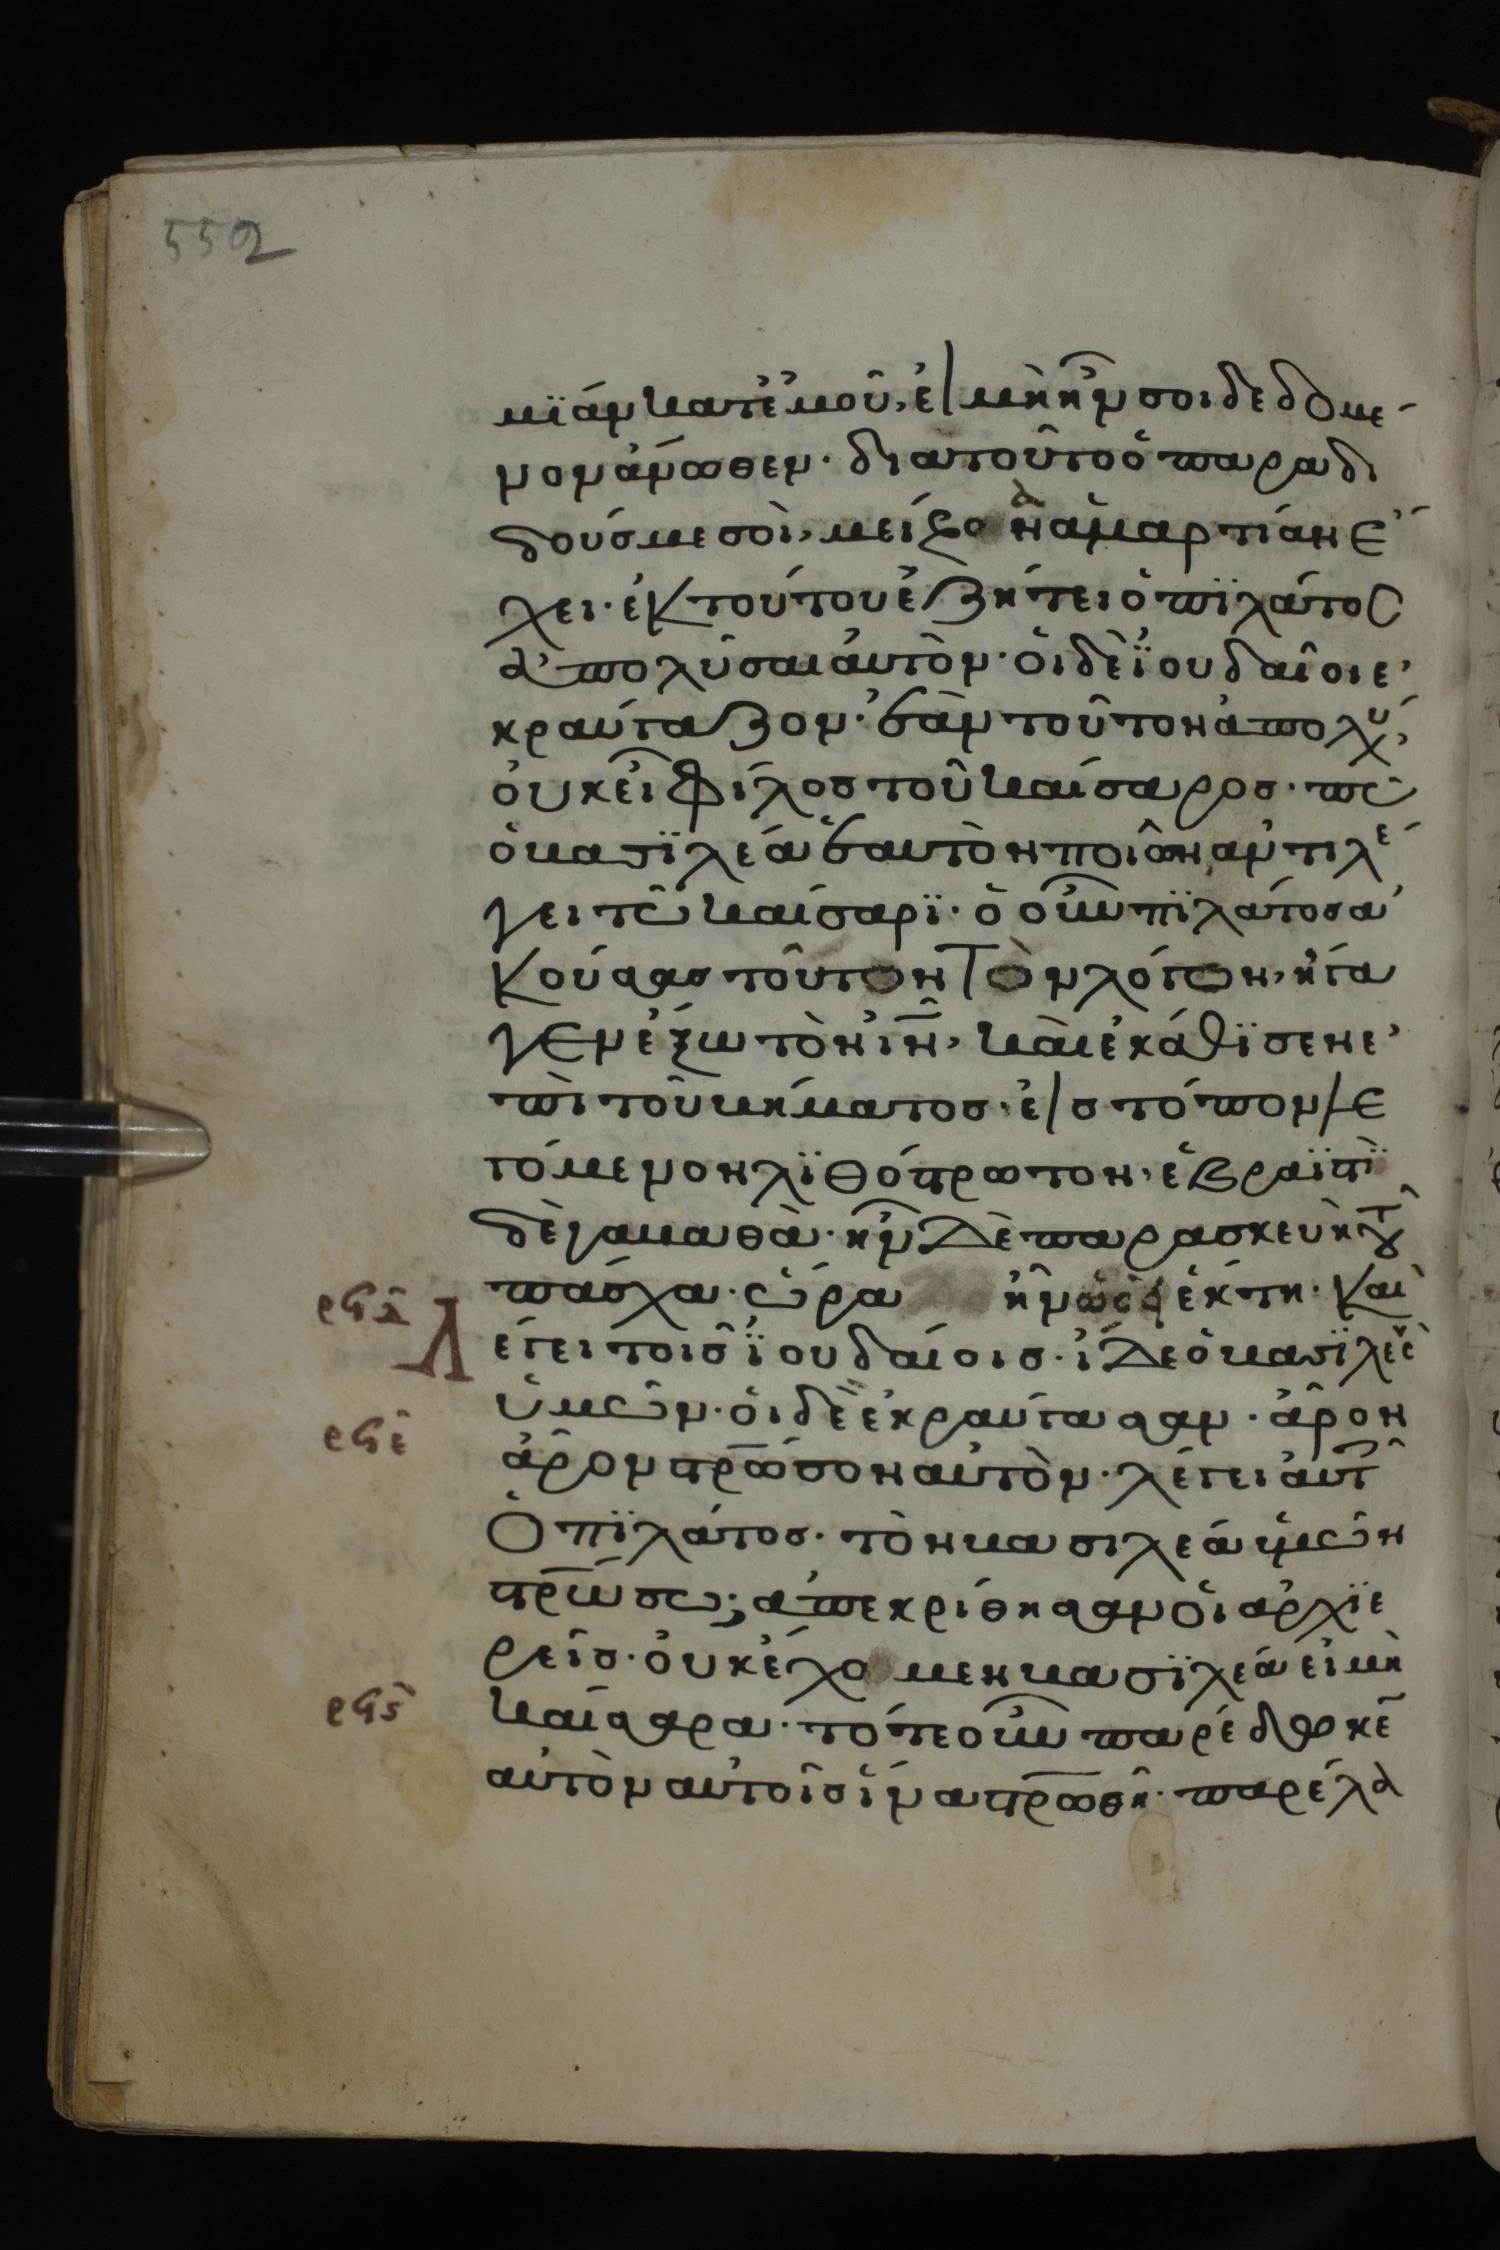 552
μϊαν κατ' ἐμοῦ, εἰ μὴ ἦν σοι δεδομέ
νον ἄνωθεν· διατοῦτο ὁ παραδι
δούς με σοὶ, μείζονα ἁμαρτίαν ἔ
χει· ἐκ τούτου ἐζήτει ὁ πϊλάτος
ἀπολῦσαι αὐτὸν· οἱ δὲ ϊουδαῖοι ἐ
κραύγαζον· ἐὰν τοῦτον ἀπολύσ
οὐκ εἶ φίλος τοῦ καίσαρος· πᾶς
ὁ βασϊλέα ἑαυτὸν ποιῶν, ἀντιλέ
γει τῶ καίσαρϊ· ὁ οὖν πϊλάτος ἀ
κούσας τοῦτον τὸν λόγον, ἤγα
γεν ἔξω τὸν ιν̅, καὶ ἐκάθϊσεν ἐ
πὶ τοῦ βήματος· εἰς τόπον λε
γόμενον λϊθόστρωτον, ἑβραϊστὶ
δὲ γαβαθὰ· ἦν δὲ παρασκευὴ τοῦ
πάσχα· ὥρα ἦν ὡσεὶ ἕκτη· καὶ
ρϟδ λέγει τοῖς ϊουδαίοις· ἴδε ὁ βασϊλεὺς
ρϟε ὑμῶν· οἱ δὲ ἐκραύγασαν· ἆρον
ἆρον σταυ̅ρωσον αὐτὸν· λέγει αὐτοῖς
ὁ πϊλάτος· τὸν βασιλέα ὑμῶν
στρ̅ώσω; ἀπεκρίθησαν οἱ ἀρχϊε
ρεῖς· οὐκ ἔχομεν βασϊλέα εἰ μὴ
ρϟς καίσαρα· τότε οὖν παρέδωκεν
αὐτὸν αὐτοῖς ἵνα στρ̅ωθῆ· παρέλα